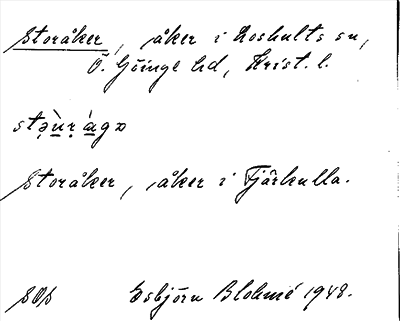 Storåker, åker i Loshults sn,
Ö. Göinge hd, Krist. l.
Storåker, åker i Tjärkulla.
SOD Esbjörn Blohmé 1948.